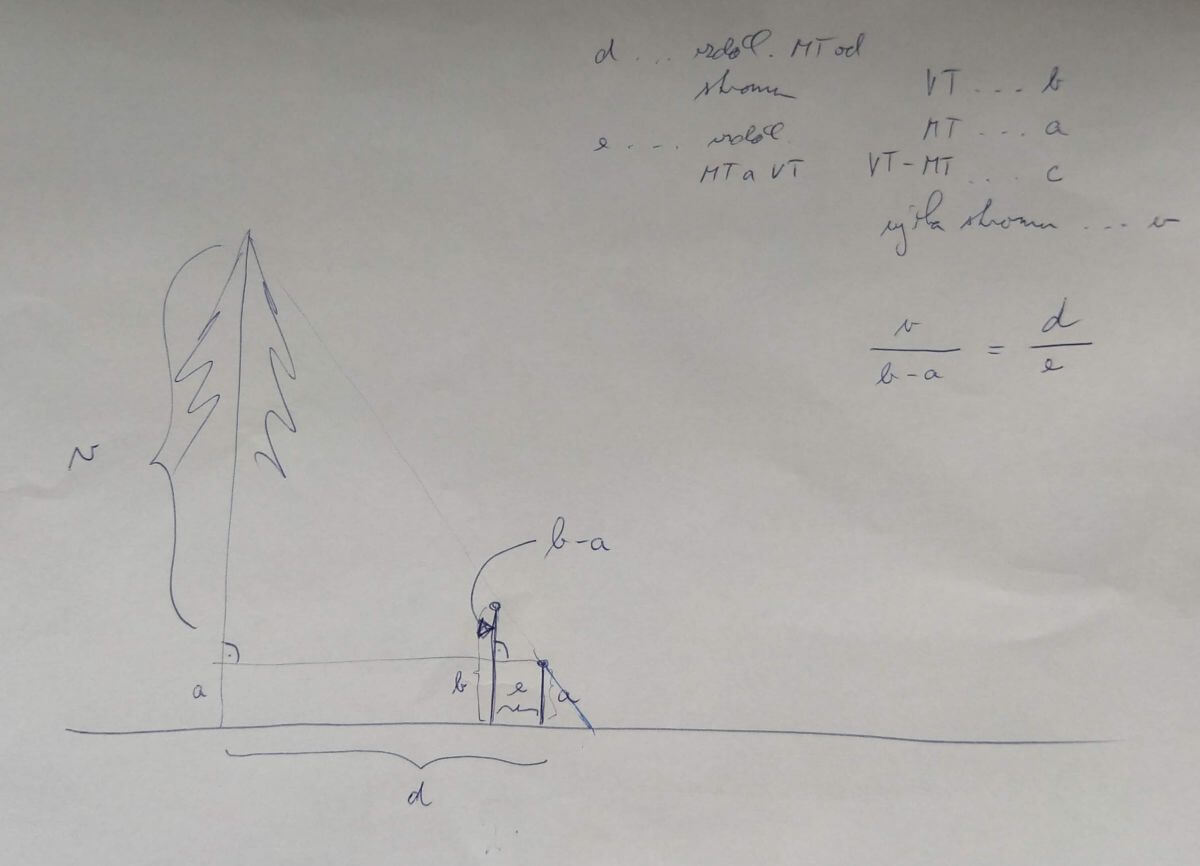 d ... vzdál. MT od
stromu
e ... vzdál.
MT a VT
VT ... b
MT ... a
VT-MT ... c
výška stromu ... v
v
b-a
=
d
e
v
b-a
a
b
e
a
d